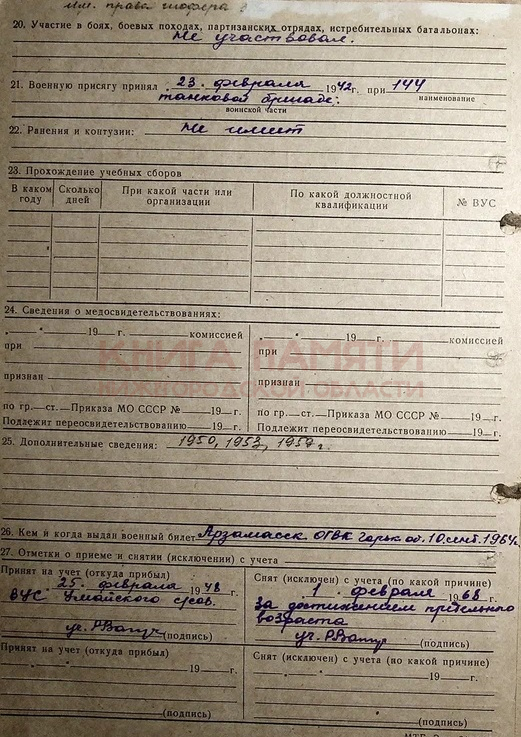 им. права шофера 3
20. Участие в боях, боевых походах, партизанских отрядах, истребительных батальонах:
Не участвовал.
21. Военную присягу принял „23" февраля 1942г. при 144
танковой бригаде. наименование
воинской части
22. Ранения и контузии: Не имеет
23. Прохождение учебных сборов
В каком году Сколько дней При какой части или организации По какой должностной квалификации № ВУС
24. Сведения о медосвидетельствованиях:
„ " 19 г. комиссией „ " 19 г. комиссией
при при
КНИГА ПАМЯТИ
НИЖЕГОРОДСКОЙ ОБЛАСТИ
признан признан
по гр. ст. Приказа МО СССР № 19 г. по гр. ст. Приказа МО СССР № 19 г.
Подлежит переосвидетельствованию 19 г. Подлежит переосвидетельствованию 19 г.
25. Дополнительные сведения: 1950, 1953, 1959 г.
26. Кем и когда выдан военный билет Арзамасск. ОГВК горьк. об. 10 сент. 1964г.
27. Отметки о приеме и снятии (исключении) с учета
Принят на учет (откуда прибыл) Снят (исключен) с учета (по какой причине)
„25" февраля 1948 г. „1" февраля 1968 г.
ВУС
за достижением предельного
возраста
(подпись) (подпись)
Принят на учет (откуда прибыл) Снят (исключен) с учета (по какой причине)
„ " 19 г. „ " 19 г.
(подпись) (подпись)